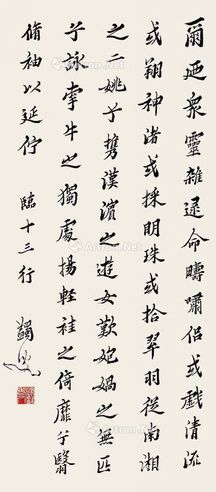 爾迺眾靈雜遝命疇嘯侶或戲清流
或翔神渚或採明珠或拾翠羽從南湘
之二姚兮攜漢濱之遊女歎媧之無匹
兮詠牽牛之獨處揚輕袿之倚靡兮翳
脩袖以延佇 臨十三行 蠲叟